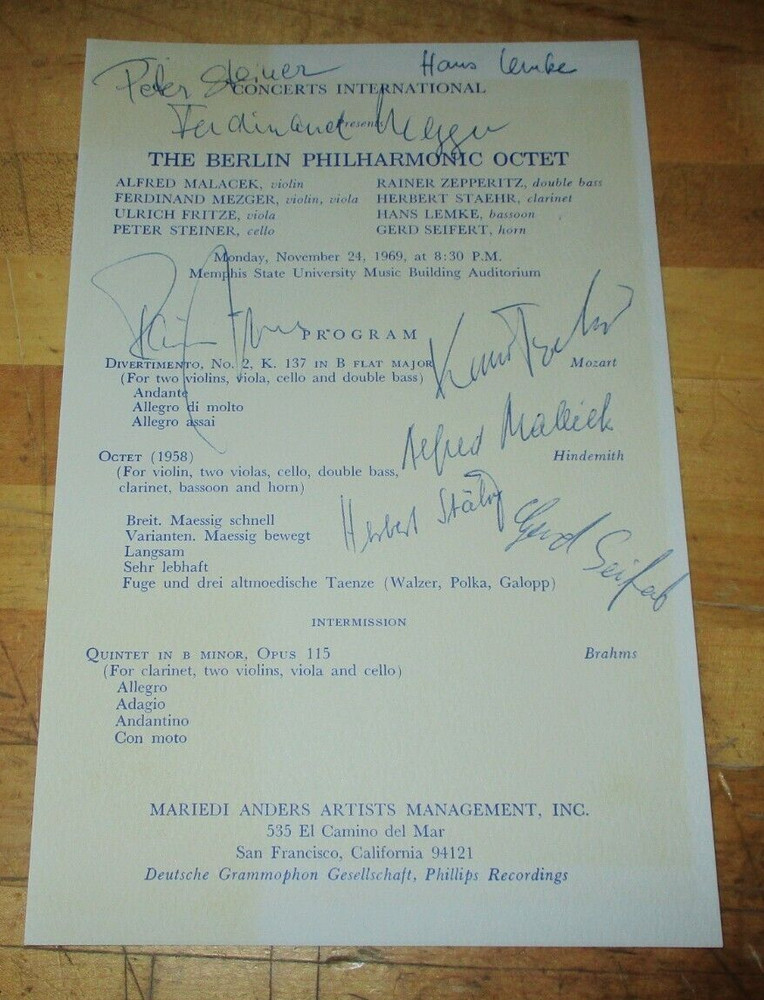 Peter Steiner Hans Lemke
CONCERTS INTERNATIONAL
Ferdinand Mezger
Presents
THE BERLIN PHILHARMONIC OCTET
ALFRED MALACEK, violin RAINER ZEPPERITZ, double bass
FERDINAND MEZGER, violin, viola HERBERT STAEHR, clarinet
ULRICH FRITZE, viola HANS LEMKE, bassoon
PETER STEINER, cello GERD SEIFERT, horn
Monday, November 24, 1969, at 8:30 P.M.
Memphis State University Music Building Auditorium
PROGRAM
DIVERTIMENTO, NO. 2, K. 137 IN B FLAT MAJOR Mozart
(For two violins, viola, cello and double bass)
Andante
Allegro di molto
Allegro assai
Alfred Malicek
OCTET (1958) Hindemith
(For violin, two violas, cello, double bass,
clarinet, bassoon and horn)
Herbert Stähr
Gerd Seifert
Breit. Maessig schnell
Varianten. Maessig bewegt
Langsam
Sehr lebhaft
Fuge und drei altmoedische Taenze (Walzer, Polka, Galopp)
INTERMISSION
QUINTET IN B MINOR, OPUS 115 Brahms
(For clarinet, two violins, viola and cello)
Allegro
Adagio
Andantino
Con moto
MARIEDI ANDERS ARTISTS MANAGEMENT, INC.
535 El Camino del Mar
San Francisco, California 94121
Deutsche Grammophon Gesellschaft, Phillips Recordings